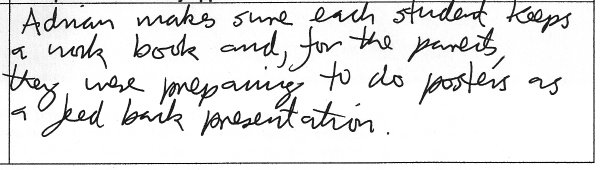 Adrian makes sure each student keeps
a work book and, for the parents,
they were preparing to do posters as
a feed back presentation.